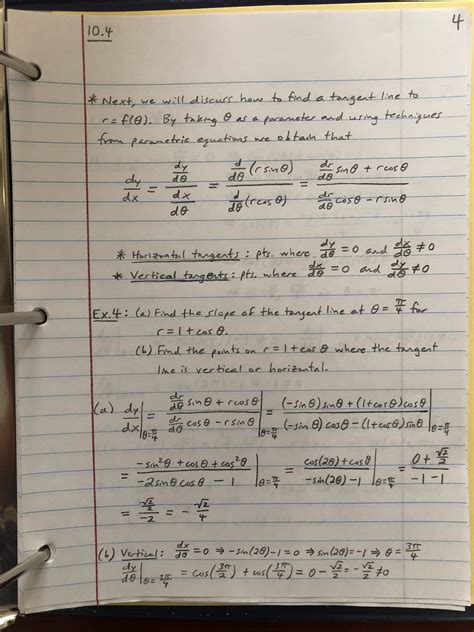 10.4
4
* Next, we will discuss how to find a tangent line to
r = f(θ). By taking θ as a parameter and using techniques
from parametric equations we obtain that
dy/dx = (dy/dθ)/(dx/dθ) = (d/dθ (r sinθ))/(d/dθ (r cosθ)) = (dr/dθ sinθ + r cosθ)/(dr/dθ cosθ - r sinθ)
* Horizontal tangents : pts. where dy/dθ = 0 and dx/dθ ≠ 0
* Vertical tangents : pts. where dx/dθ = 0 and dy/dθ ≠ 0
Ex.4 : (a) Find the slope of the tangent line at θ = π/4 for
r = 1 + cosθ.
(b) Find the points on r = 1 + cosθ where the tangent
line is vertical or horizontal.
(a) dy/dx |θ=π/4 = (dr/dθ sinθ + r cosθ)/(dr/dθ cosθ - r sinθ) |θ=π/4 = ((-sinθ) sinθ + (1+cosθ) cosθ)/((-sinθ) cosθ - (1+cosθ) sinθ) |θ=π/4
= (-sin²θ + cosθ + cos²θ)/(-2 sinθ cosθ - 1) |θ=π/4 = (cos(2θ) + cosθ)/(-sin(2θ) - 1) |θ=π/4 = (0 + √2/2)/(-1 - 1)
= (√2/2)/-2 = - √2/4
(b) Vertical: dx/dθ = 0 ⇒ -sin(2θ) - 1 = 0 ⇒ sin(2θ) = -1 ⇒ θ = 3π/4
dy/dθ |θ=3π/4 = cos(3π/2) + cos(3π/4) = 0 - √2/2 = - √2/2 ≠ 0